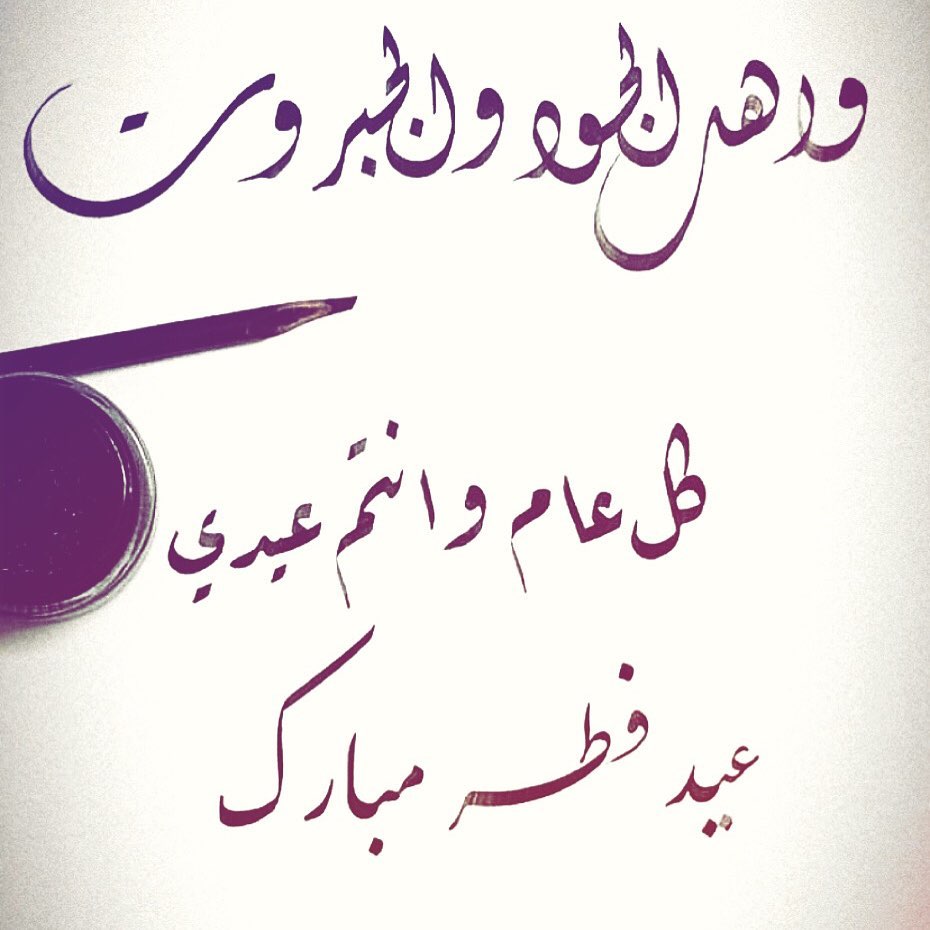 واهل الجود والجبروت
كل عام وانتم عيدي
عيد فطر مبارك